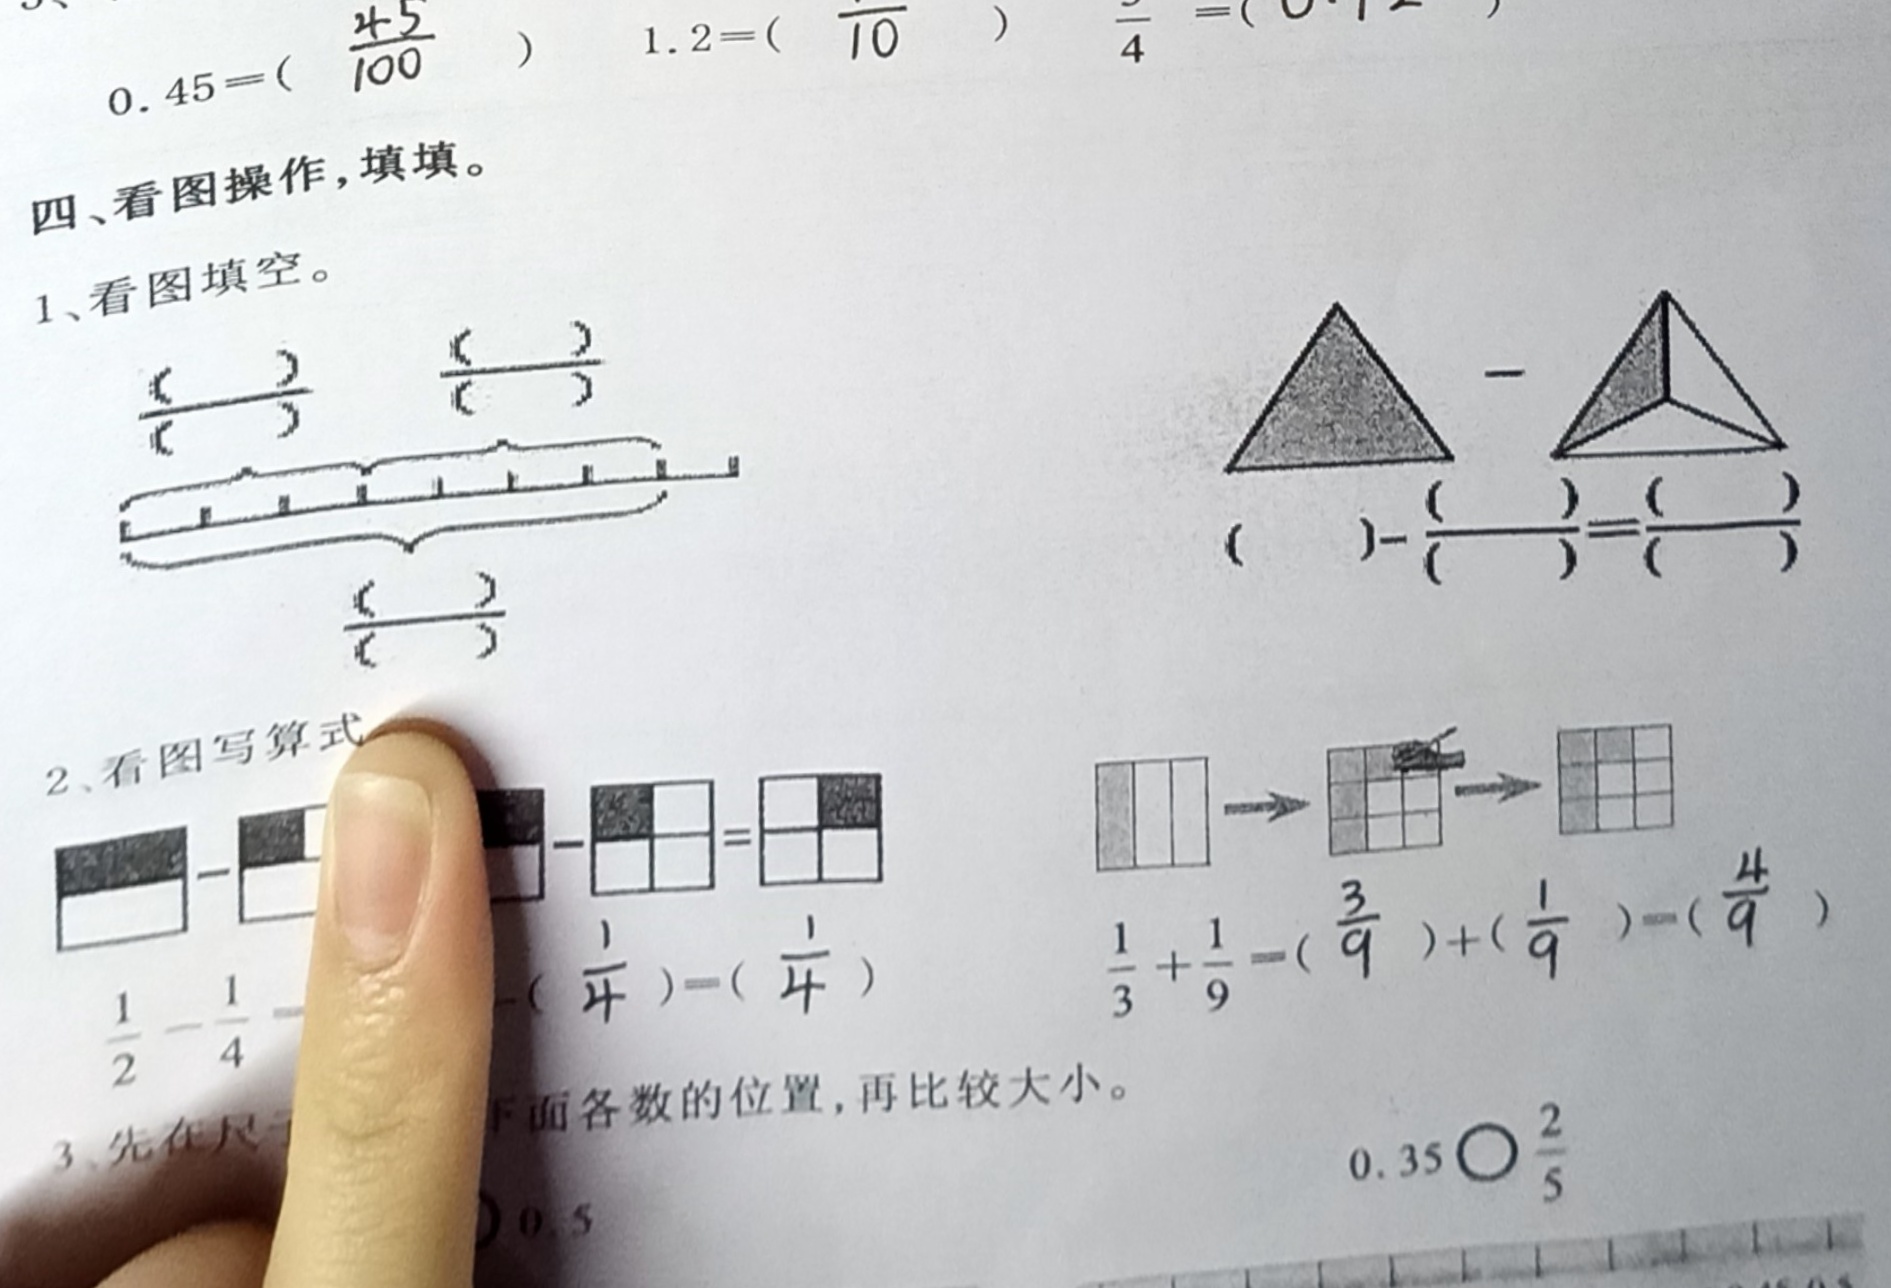 0.45=( 45/100 ) 1.2=( /10 ) /4 =( )
四、看图操作,填填。
1、看图填空。
( )/( ) ( )/( )
( )/( )
−
( )-( )/( )=( )/( )
2、看图写算式
− − =
1/2 − 1/4 = -( 1/4 )=( 1/4 )
1/3 + 1/9 =( 3/9 )+( 1/9 )=( 4/9 )
3、先在尺 下面各数的位置,再比较大小。
0.5 0.35○2/5